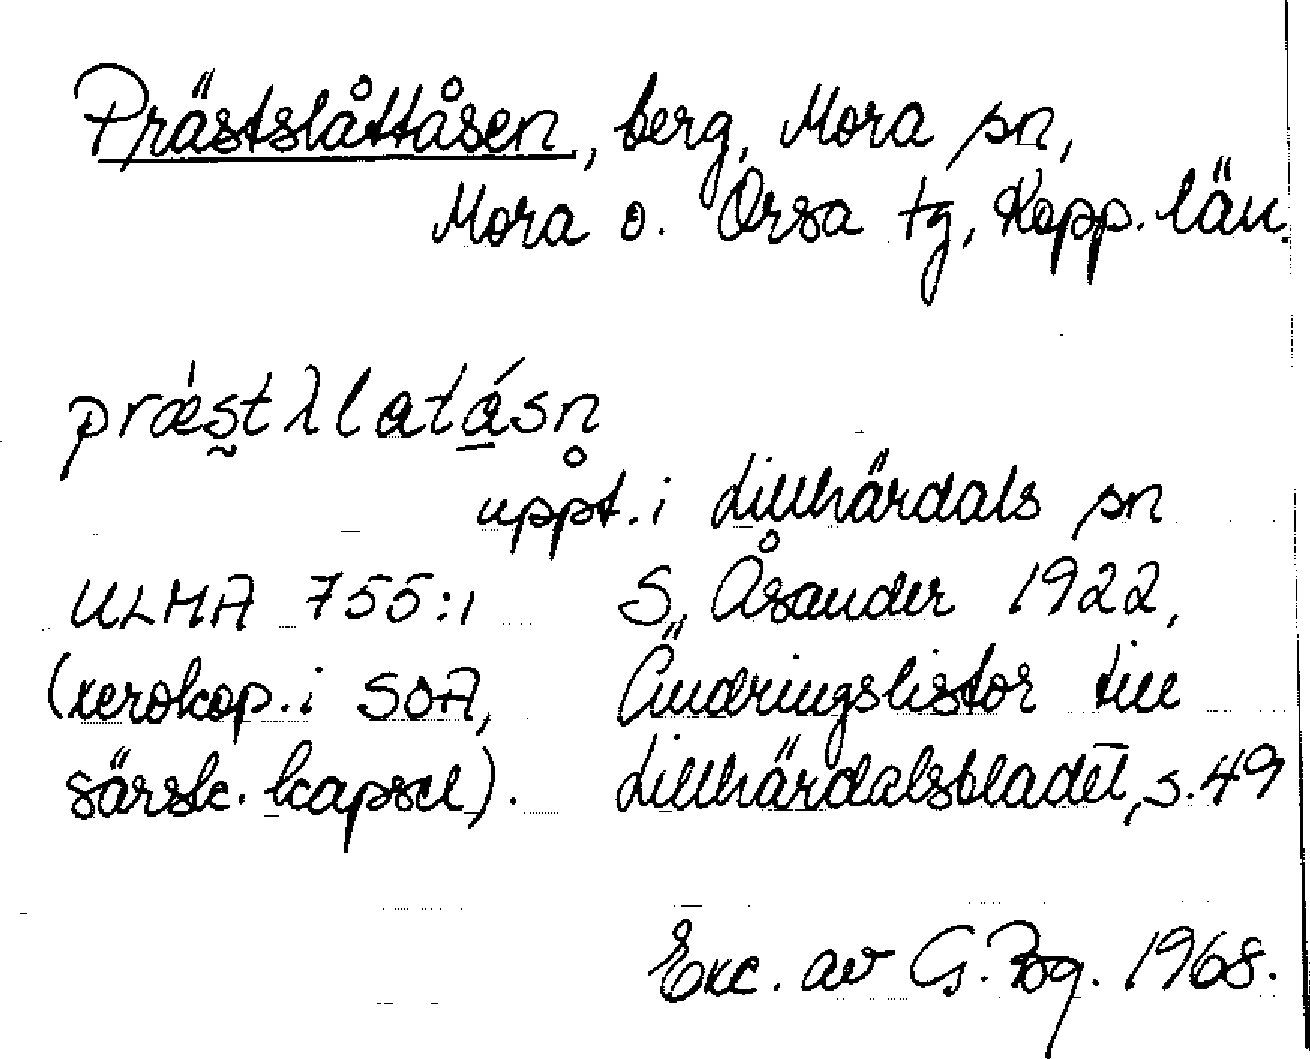 Prästslåttåsen, berg, Mora sn,
Mora o. Orsa tg, Kopp. län.
prǽs̰tλlatá̱sn̥
uppt. i Lillhärdals sn
ULMA 755:1 S. Åsander 1922,
(xerokop. i SOA, Ändringslistor till
särsk. kapsel). Lillhärdalsbladet, s. 49
Exc. av G. Bg. 1968.